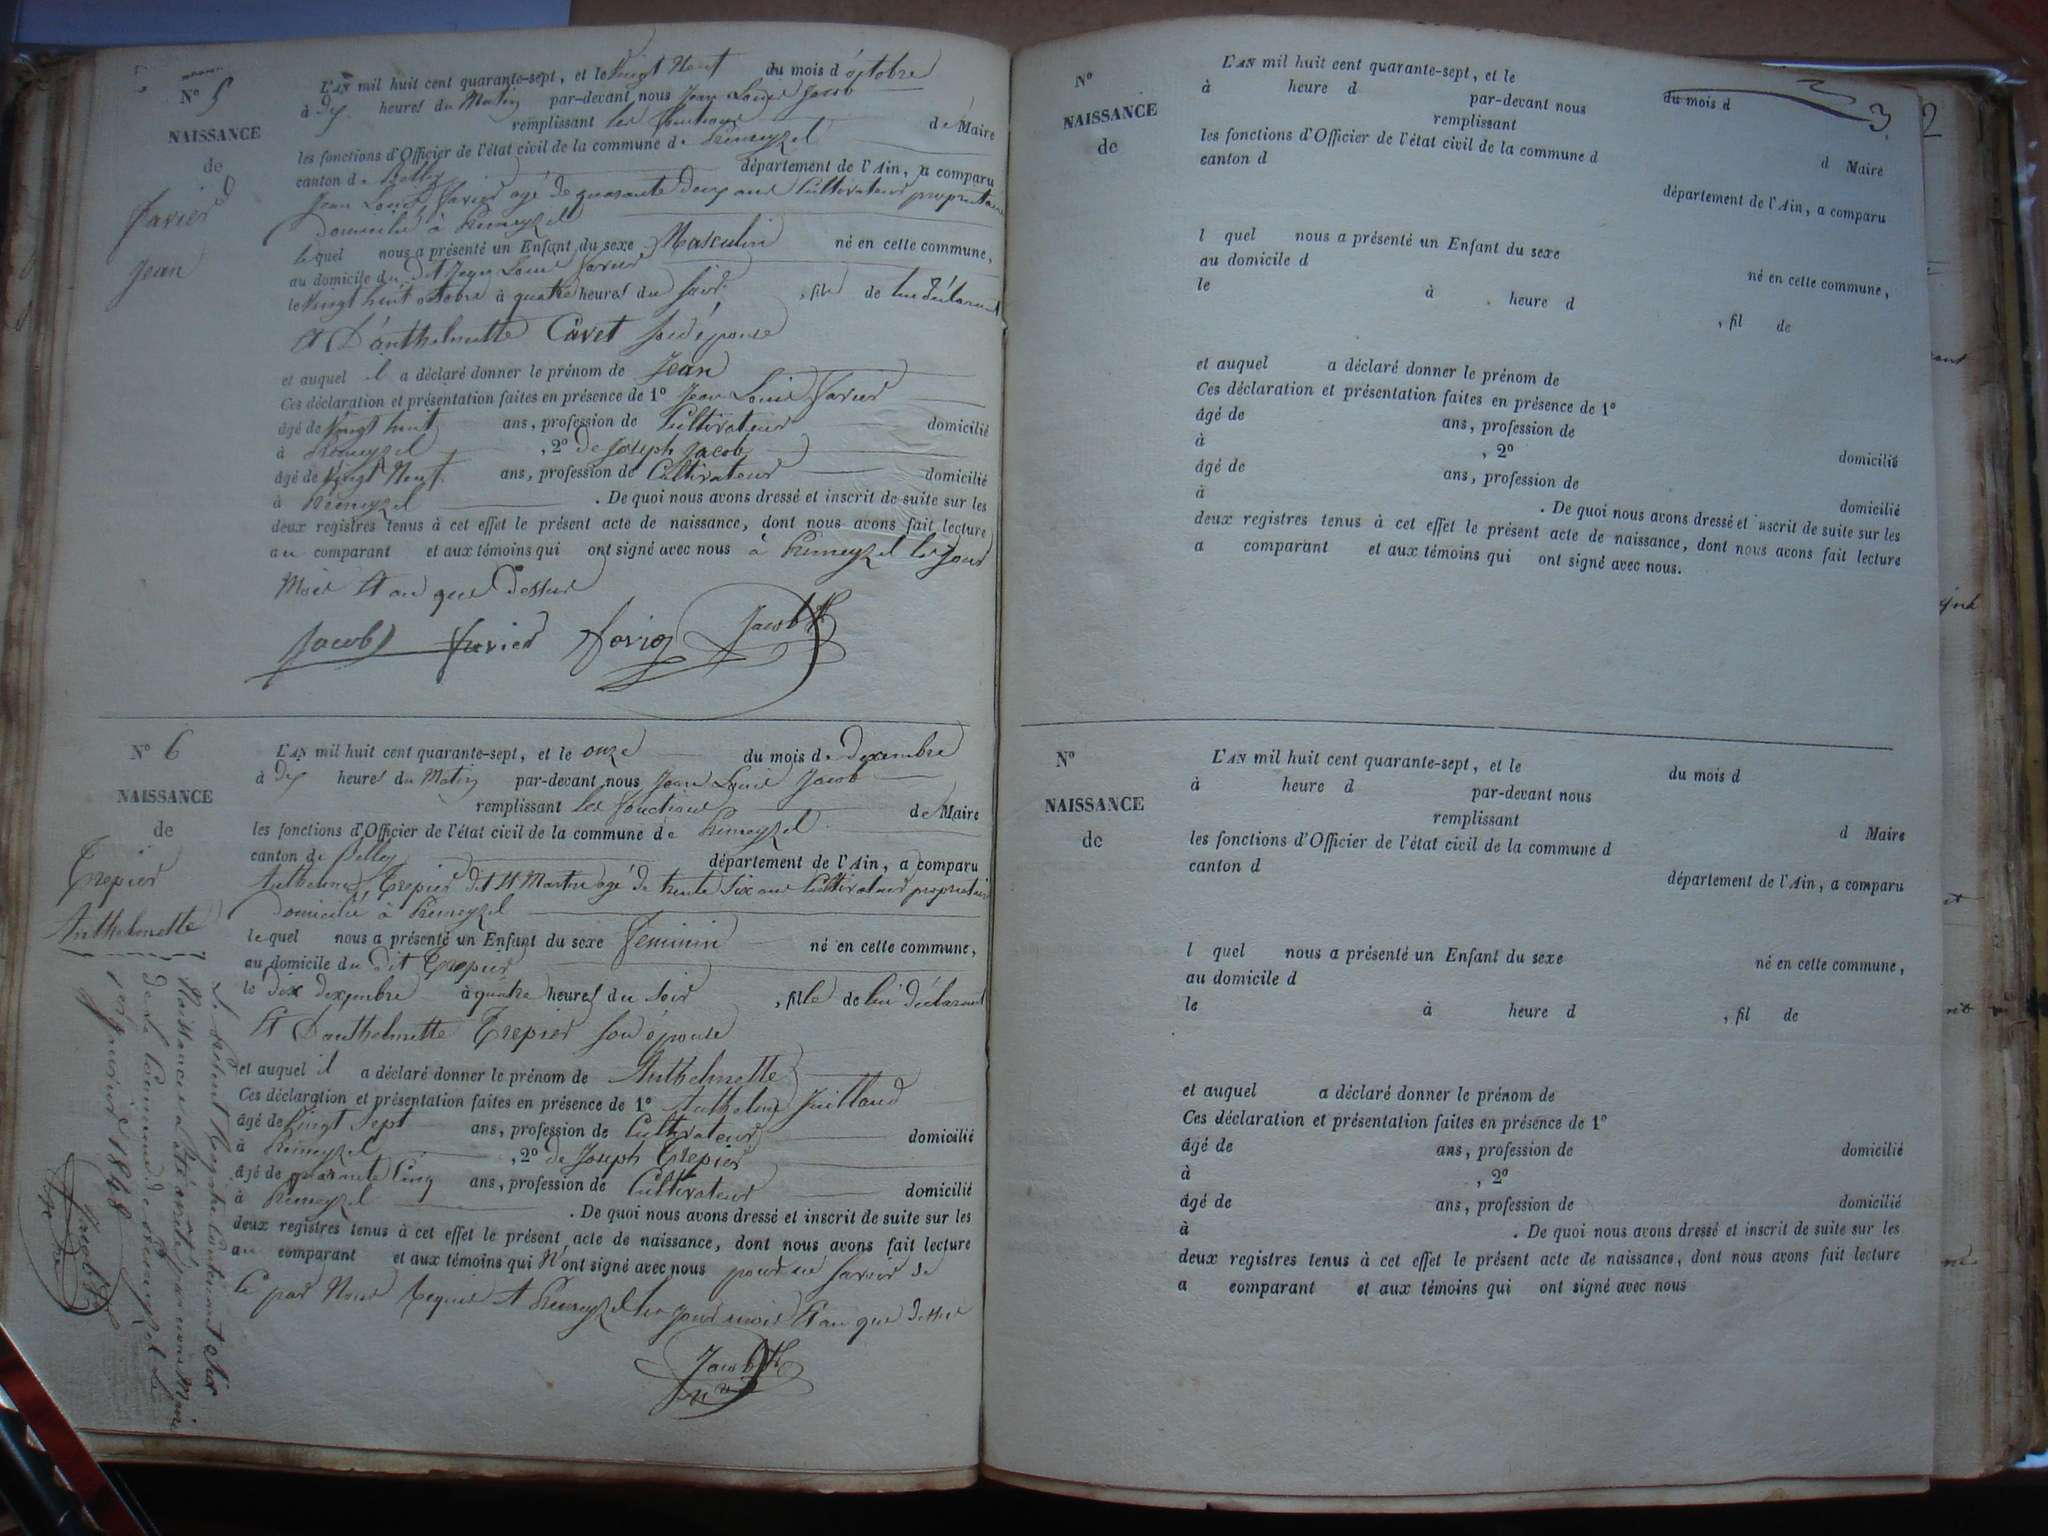 N° 5
NAISSANCE
de
Favier
Jean
L'AN mil huit cent quarante-sept, et le vingt Neuf du mois d'octobre
à dix heures du Matin par-devant nous Jean Louis Jacob
remplissant les fonctions de Maire
les fonctions d'Officier de l'état civil de la commune de Premeyzel
canton de Belley département de l'Ain, a comparu
Jean Louis Favier agé de quarante deux ans Cultivateur proprietaire
domicilié à Premeyzel
lequel nous a présenté un Enfant du sexe Masculin né en cette commune,
au domicile du dit Jean Louis Favier
le vingt huit octobre à quatre heures du soir, fils de lui déclarant
et D'anthelmette Cavet son épouse
et auquel il a déclaré donner le prénom de Jean
Ces déclaration et présentation faites en présence de 1° Jean Louis Favier
âgé de vingt huit ans, profession de Cultivateur domicilié
à Premeyzel, 2° de Joseph Jacob
âgé de vingt Neuf ans, profession de Cultivateur domicilié
à Premeyzel. De quoi nous avons dressé et inscrit de suite sur les
deux registres tenus à cet effet le présent acte de naissance, dont nous avons fait lecture
au comparant et aux témoins qui ont signé avec nous à Premeyzel les jour
Mois et an que dessus
Jacob Favier Favier Jacob
N° 6
NAISSANCE
de
Trepier
Anthelmette
L'AN mil huit cent quarante-sept, et le onze du mois de dexembre
à dix heures du Matin par-devant nous Jean Louis Jacob
remplissant les fonctions de Maire
les fonctions d'Officier de l'état civil de la commune de Premeyzel
canton de Belley département de l'Ain, a comparu
Anthelme Trepier dit St Martin agé de trente six ans Cultivateur proprietaire
domicilié à Premeyzel
lequel nous a présenté un Enfant du sexe Feminin né en cette commune,
au domicile du dit Trepier
le dix dexembre à quatre heures du soir, fille de lui déclarant
et D'anthelmette Trepier son épouse
et auquel il a déclaré donner le prénom de Anthelmette
Ces déclaration et présentation faites en présence de 1° Anthelme Juilland
âgé de vingt sept ans, profession de Cultivateur domicilié
à Premeyzel, 2° de Joseph Trepier
âgé de quarante cinq ans, profession de Cultivateur domicilié
à Premeyzel. De quoi nous avons dressé et inscrit de suite sur les
deux registres tenus à cet effet le présent acte de naissance, dont nous avons fait lecture
au comparant et aux témoins qui N'ont signé avec nous pour ne savoir de
ce par Nous requis et Premeyzel les jour mois et an que dessus
Jacob
Le présent Registre Contenant Six
Naissances a été arrêté par nous Maire
de la Commune de Premeyzel le
1er janvier 1848
Jacob
3
N°
NAISSANCE
de
L'AN mil huit cent quarante-sept, et le du mois d
à heure d par-devant nous
remplissant d Maire
les fonctions d'Officier de l'état civil de la commune d
canton d département de l'Ain, a comparu
l quel nous a présenté un Enfant du sexe né en cette commune,
au domicile d
le à heure d , fil de
et auquel a déclaré donner le prénom de
Ces déclaration et présentation faites en présence de 1°
âgé de ans, profession de domicilié
à , 2°
âgé de ans, profession de domicilié
à . De quoi nous avons dressé et inscrit de suite sur les
deux registres tenus à cet effet le présent acte de naissance, dont nous avons fait lecture
a comparant et aux témoins qui ont signé avec nous.
N°
NAISSANCE
de
L'AN mil huit cent quarante-sept, et le du mois d
à heure d par-devant nous
remplissant d Maire
les fonctions d'Officier de l'état civil de la commune d
canton d département de l'Ain, a comparu
l quel nous a présenté un Enfant du sexe né en cette commune,
au domicile d
le à heure d , fil de
et auquel a déclaré donner le prénom de
Ces déclaration et présentation faites en présence de 1°
âgé de ans, profession de domicilié
à , 2°
âgé de ans, profession de domicilié
à . De quoi nous avons dressé et inscrit de suite sur les
deux registres tenus à cet effet le présent acte de naissance, dont nous avons fait lecture
a comparant et aux témoins qui ont signé avec nous
2